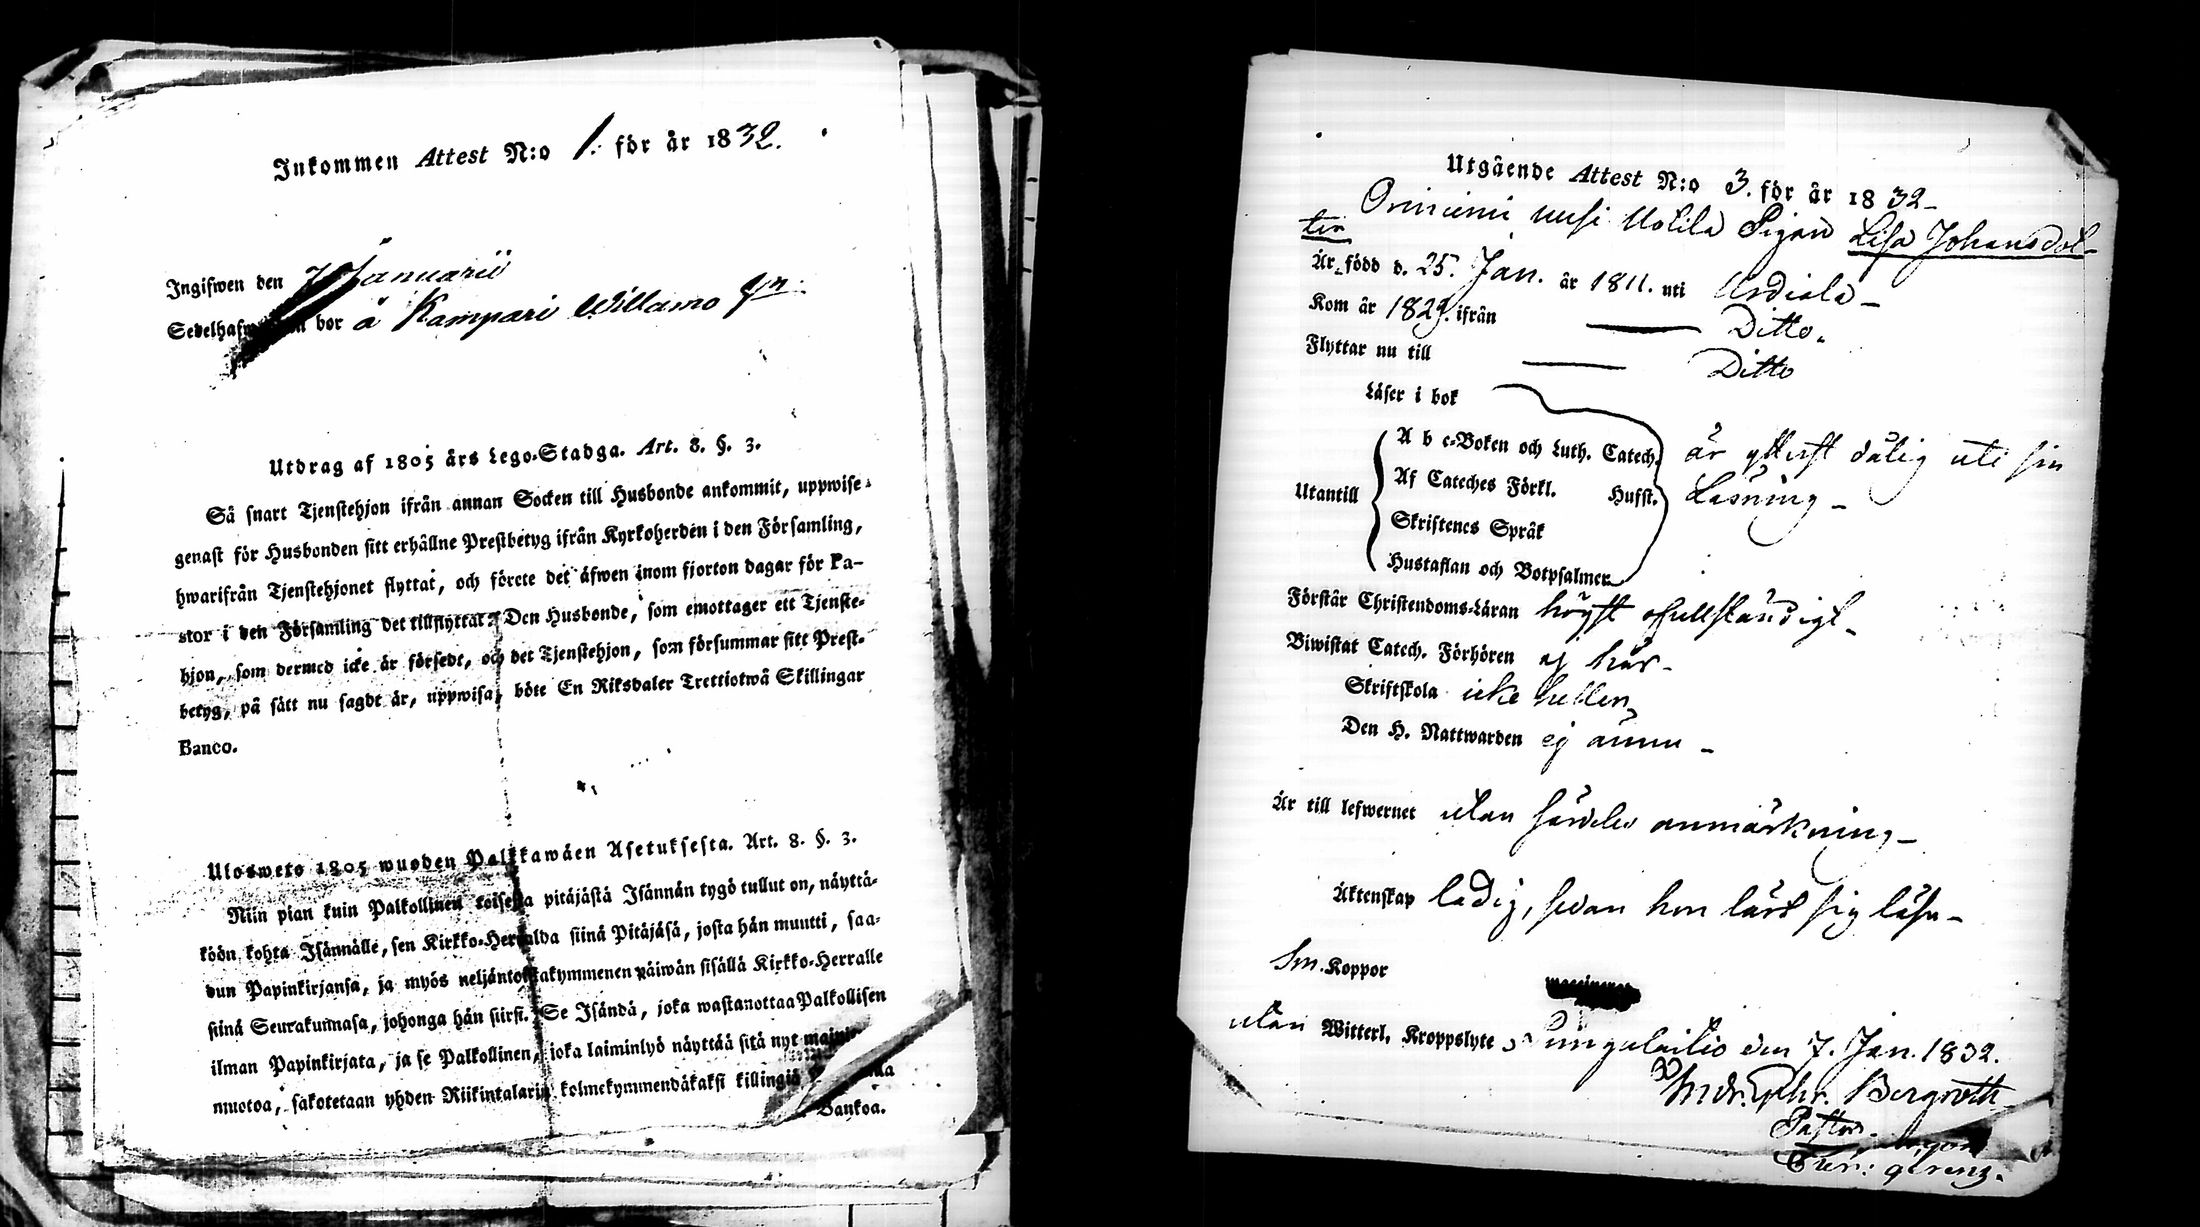 Inkommen Attest N:o 1. för år 1832.
Ingifwen den 7 Januarii
bor å Kampari Willamo
Utdrag af 1805 års Lego-Stadga. Art. 8. §. 3.
Så snart Tjenstehjon ifrån annan Socken till Husbonde ankommit, uppwise
genast för Husbonden sitt erhållne Prestbetyg ifrån Kyrkoherden i den Församling,
hwarifrån Tjenstehjonet flyttat, och förete det äfwen inom fjorton dagar för Pa-
stor i den Församling det tillflyttat. Den Husbonde, som emottager ett Tjenste-
hjon, som dermed icke är försedt, och det Tjenstehjon, som försummar sitt Prest-
betyg, på sätt nu sagdt är, uppwisa, böte En Riksdaler Trettiotwå Skillingar
Banco.
Ulosweto 1805 wuoden Palkkawäen Asetuksesta. Art. 8. §. 3.
Niin pian kuin Palkollinen toisesta pitäjästä Isännän tygö tullut on, näyttä-
köön kohta Isännälle, sen Kirkko-Herralda siinä Pitäjäsä, josta hän muutti, saa-
dun Papinkirjansa, ja myös neljäntoistakymmenen päiwän sisällä Kirkko-Herralle
siinä Seurakunnasa, johonga hän siirsi. Se Isändä, joka wastanottaa Palkollisen
ilman Papinkirjata, ja se Palkollinen, joka laiminlyö näyttää sitä nyt
muotoa, sakotetaan yhden Riikintalarin kolmekymmendäkaksi killingiä
Bankoa.
Utgående Attest N:o 3. för år 1832-
uusi Uotila Pigan Lisa Johansdot-
ter
Är född d. 25. Jan. år 1811. uti Urdiala-
Kom år 1829. ifrån — Ditto.
Flyttar nu till — Ditto
Läser i bok
Utantill
A b c-Boken och Luth. Catech. är ytterst dålig uti sin
Af Cateches Förkl. Hufst. Läsning-
Skriftenes Språk
Hustaflan och Botpsalmer
Förstår Christendoms-Läran högst ofullständigt-
Biwistat Catech. Förhören ej här-
Skriftskola icke heller
Den H. Nattwarden ej ännu-
Är till lefwernet utan särdeles anmärkning-
Äktenskap ledig, sedan hon lärt sig läsa-
Sm. Koppor
utan Witterl. Kroppslyte den 7. Jan. 1832.
Bergroth
Pastor.